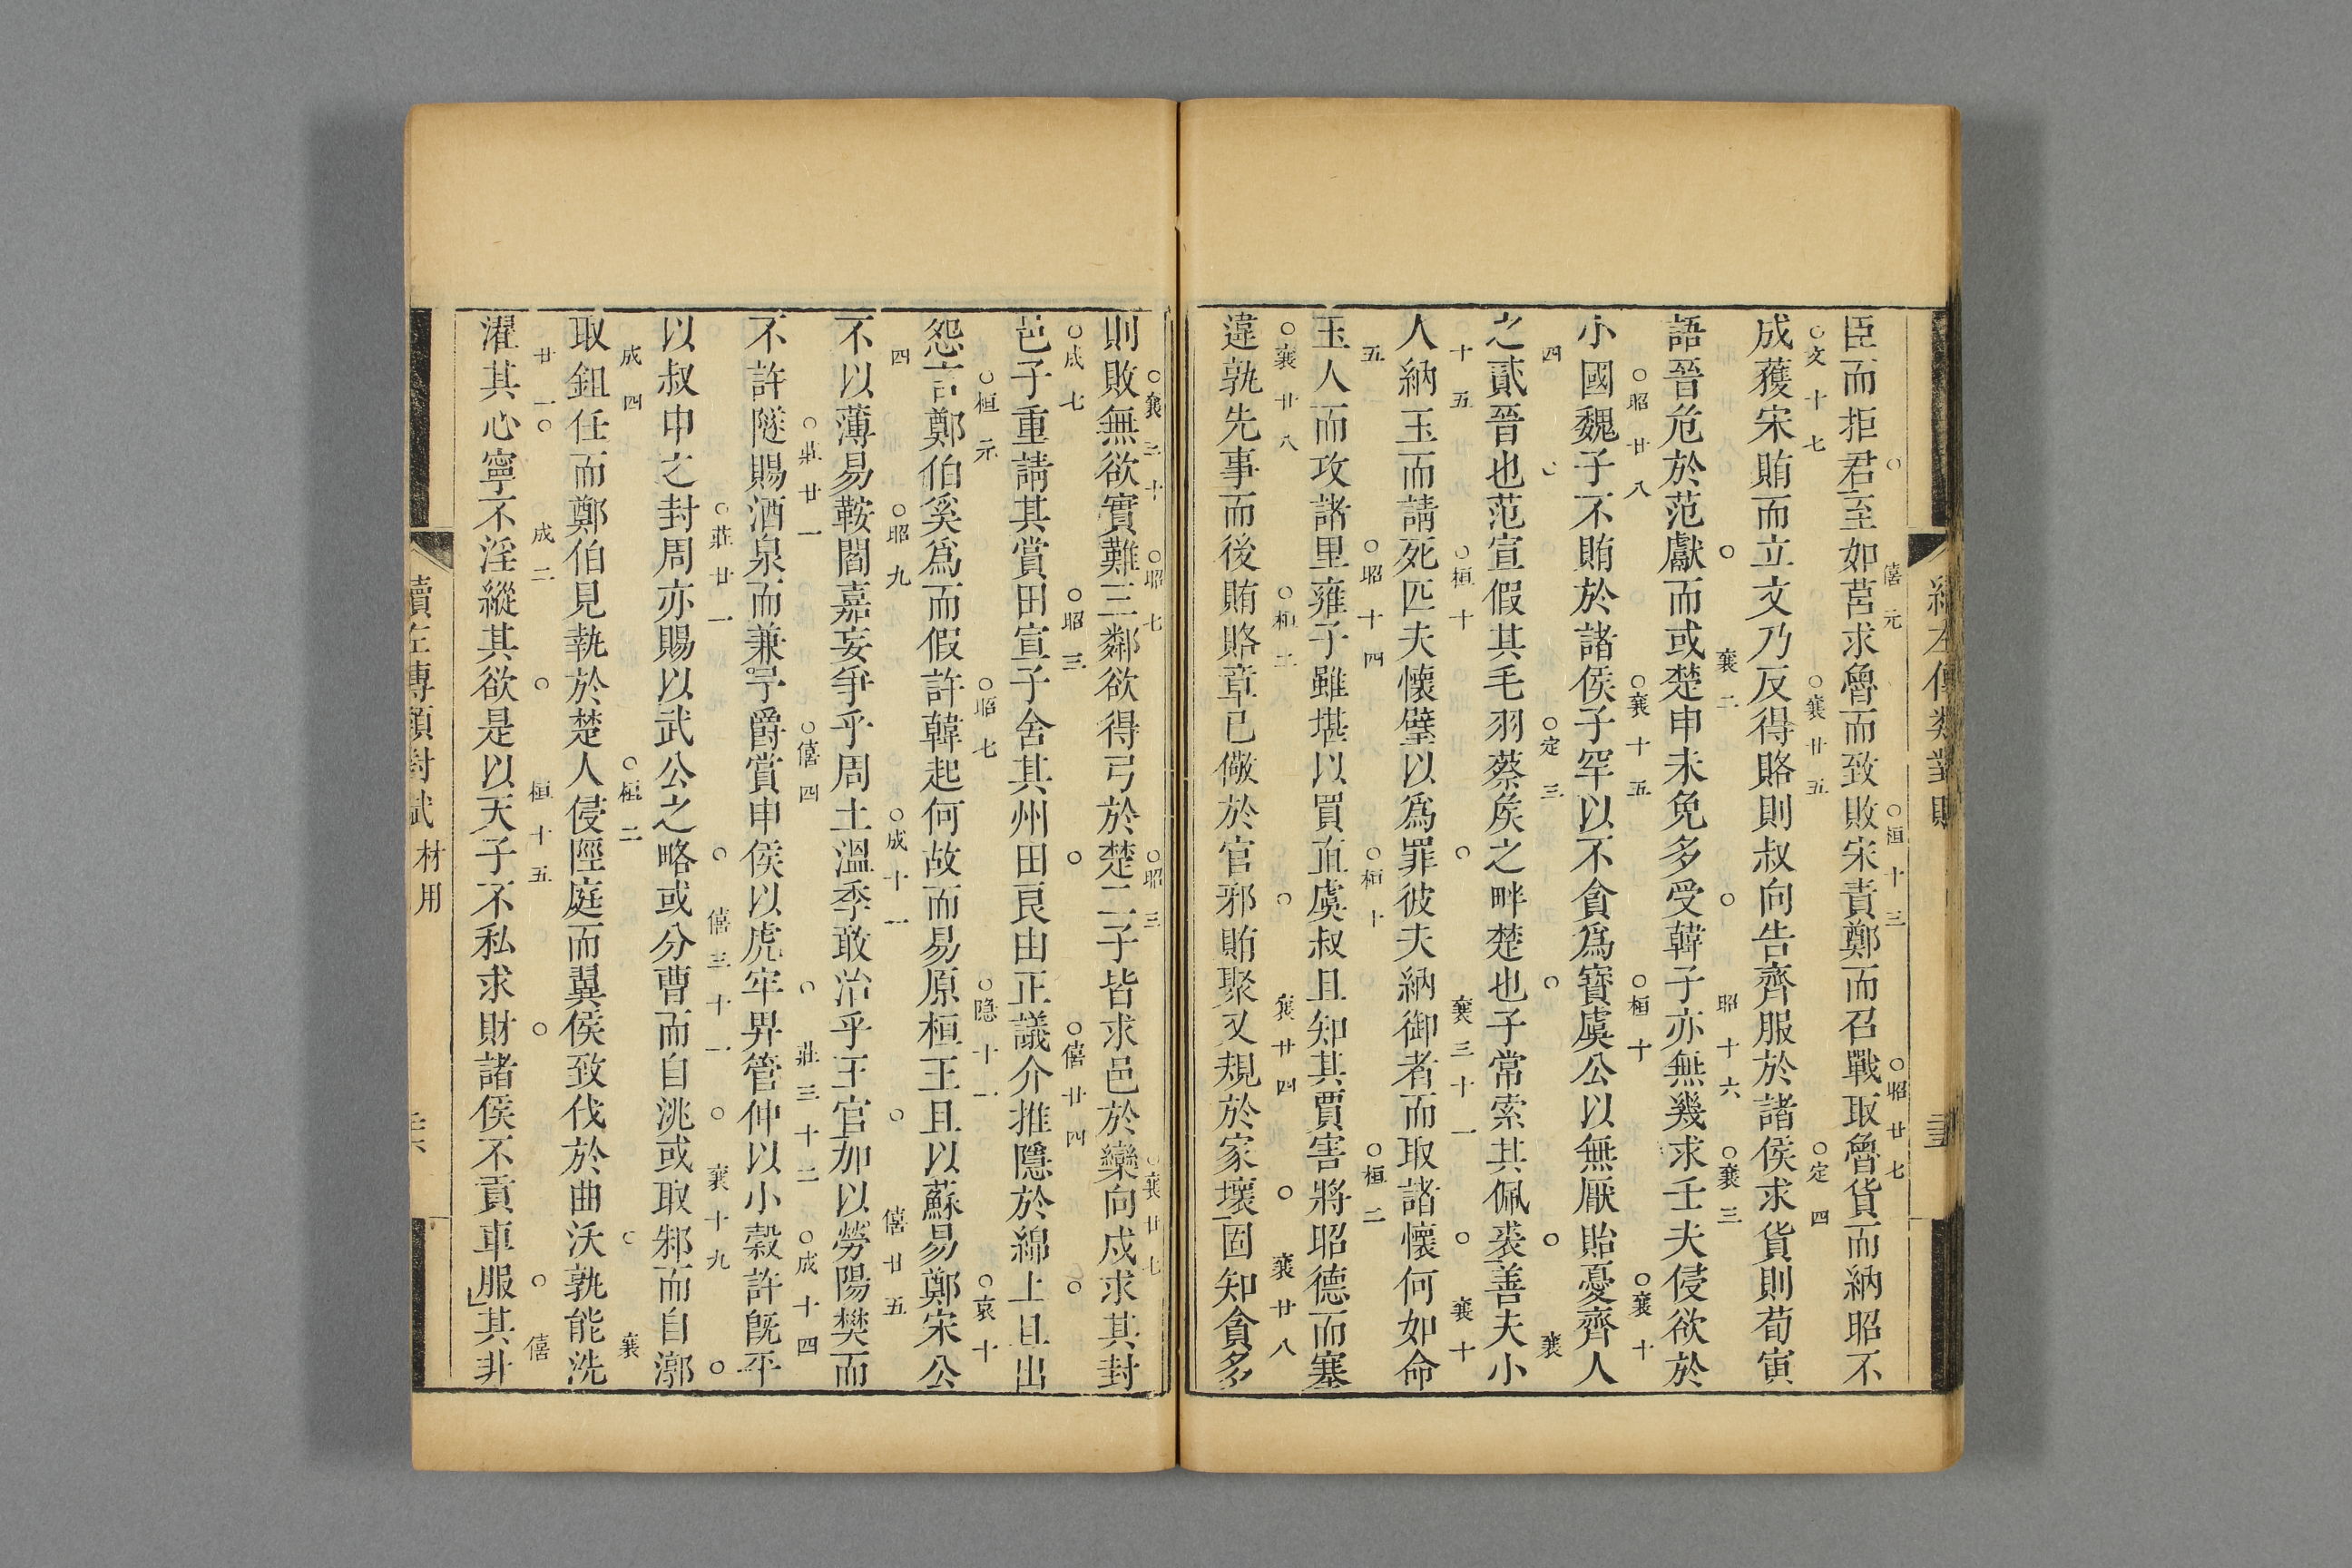 臣而拒君至如莒求魯而致敗宋責鄭而召戰取魯貨而納昭不
○ 僖元 ○桓十三 ○昭廿七
成獲宋賄而立文乃反得賂則叔向告齊服於諸侯求貨則荀寅
○文十七 ○襄廿五 ○定四
語晉危於范獻而或楚申未免多受韓子亦無幾求壬夫侵欲於
○ 襄二 ○ 昭十六 ○襄三
小國魏子不賄於諸侯子罕以不貪爲寶虞公以無厭貽憂齊人
○昭廿八 ○襄十五 ○桓十 ○襄十
之貳晉也范宣假其毛羽蔡侯之畔楚也子常索其佩裘善夫小
四 ○ ○定三 ○ ○ 襄
人納玉而請死匹夫懷璧以爲罪彼夫納御者而取諸懷何如命
十五 ○桓十 ○ 襄三十一 ○ 襄十
玉人而攻諸里雍子雖堪以買直虞叔且知其賈害將昭德而塞
五 ○昭十四 ○桓十 ○桓二
違孰先事而後賄賂章已儆於官邪賄聚又規於家壞固知貪多
○襄廿八 ○桓二 ○ 襄廿四 ○ 襄廿八
則敗無欲實難三鄰欲得弓於楚二子皆求邑於欒向戍求其封
○襄三十 ○昭七 ○昭三 ○襄廿七
邑子重請其賞田宣子舍其州田良由正議介推隱於綿上且出
○成七 ○昭三 ○ ○僖廿四 ○
怨言鄭伯奚爲而假許韓起何故而易原桓王且以蘇易鄭宋公
○桓元 ○昭七 ○隱十一 ○哀十
不以薄易鞍閻嘉妄爭乎周土溫季敢治乎王官加以勞陽樊而
四 ○昭九 ○成十一 ○ 僖廿五
不許隧賜酒泉而兼予爵賞申侯以虎牢畀管仲以小穀許旣平
○莊廿一 ○僖四 ○ 莊三十二 ○成十四
以叔申之封周亦賜以武公之略或分曹而自洮或取邾而自漷
○莊廿一 ○ 僖三十一 ○ 襄十九 ○
取鉏任而鄭伯見執於楚人侵陘庭而翼侯致伐於曲沃孰能洗
成四 ○桓二 ○ 襄
濯其心寧不淫縱其欲是以天子不私求財諸侯不貢車服」其非
廿一○ 成二 ○ 桓十五 ○ ○ 僖
續左傳類對賦 材用